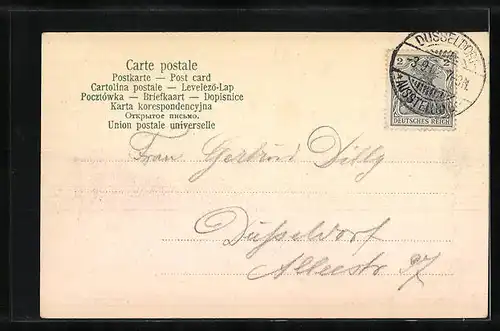 Carte postale
Postkarte — Post card
Cartolina postale — Levelező-Lap
Pocztówka — Briefkaart — Dopisnice
Karta korespondencyjna
Открытое письмо.
Union postale universelle
DÜSSELDORF
AUSSTELLUNG
2 2
DEUTSCHES REICH
Frau Gertrud Dilly
Düsseldorf
Alleestr 37